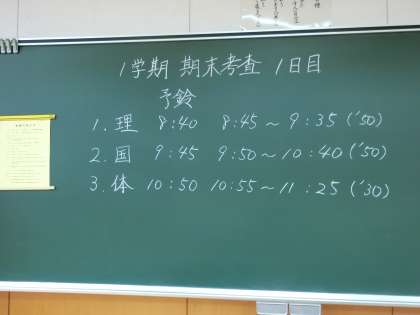 1学期 期末考査 1日目
予鈴
1. 理 8:40 8:45～9:35 ('50)
2. 国 9:45 9:50～10:40 ('50)
3. 体 10:50 10:55～11:25 ('30)